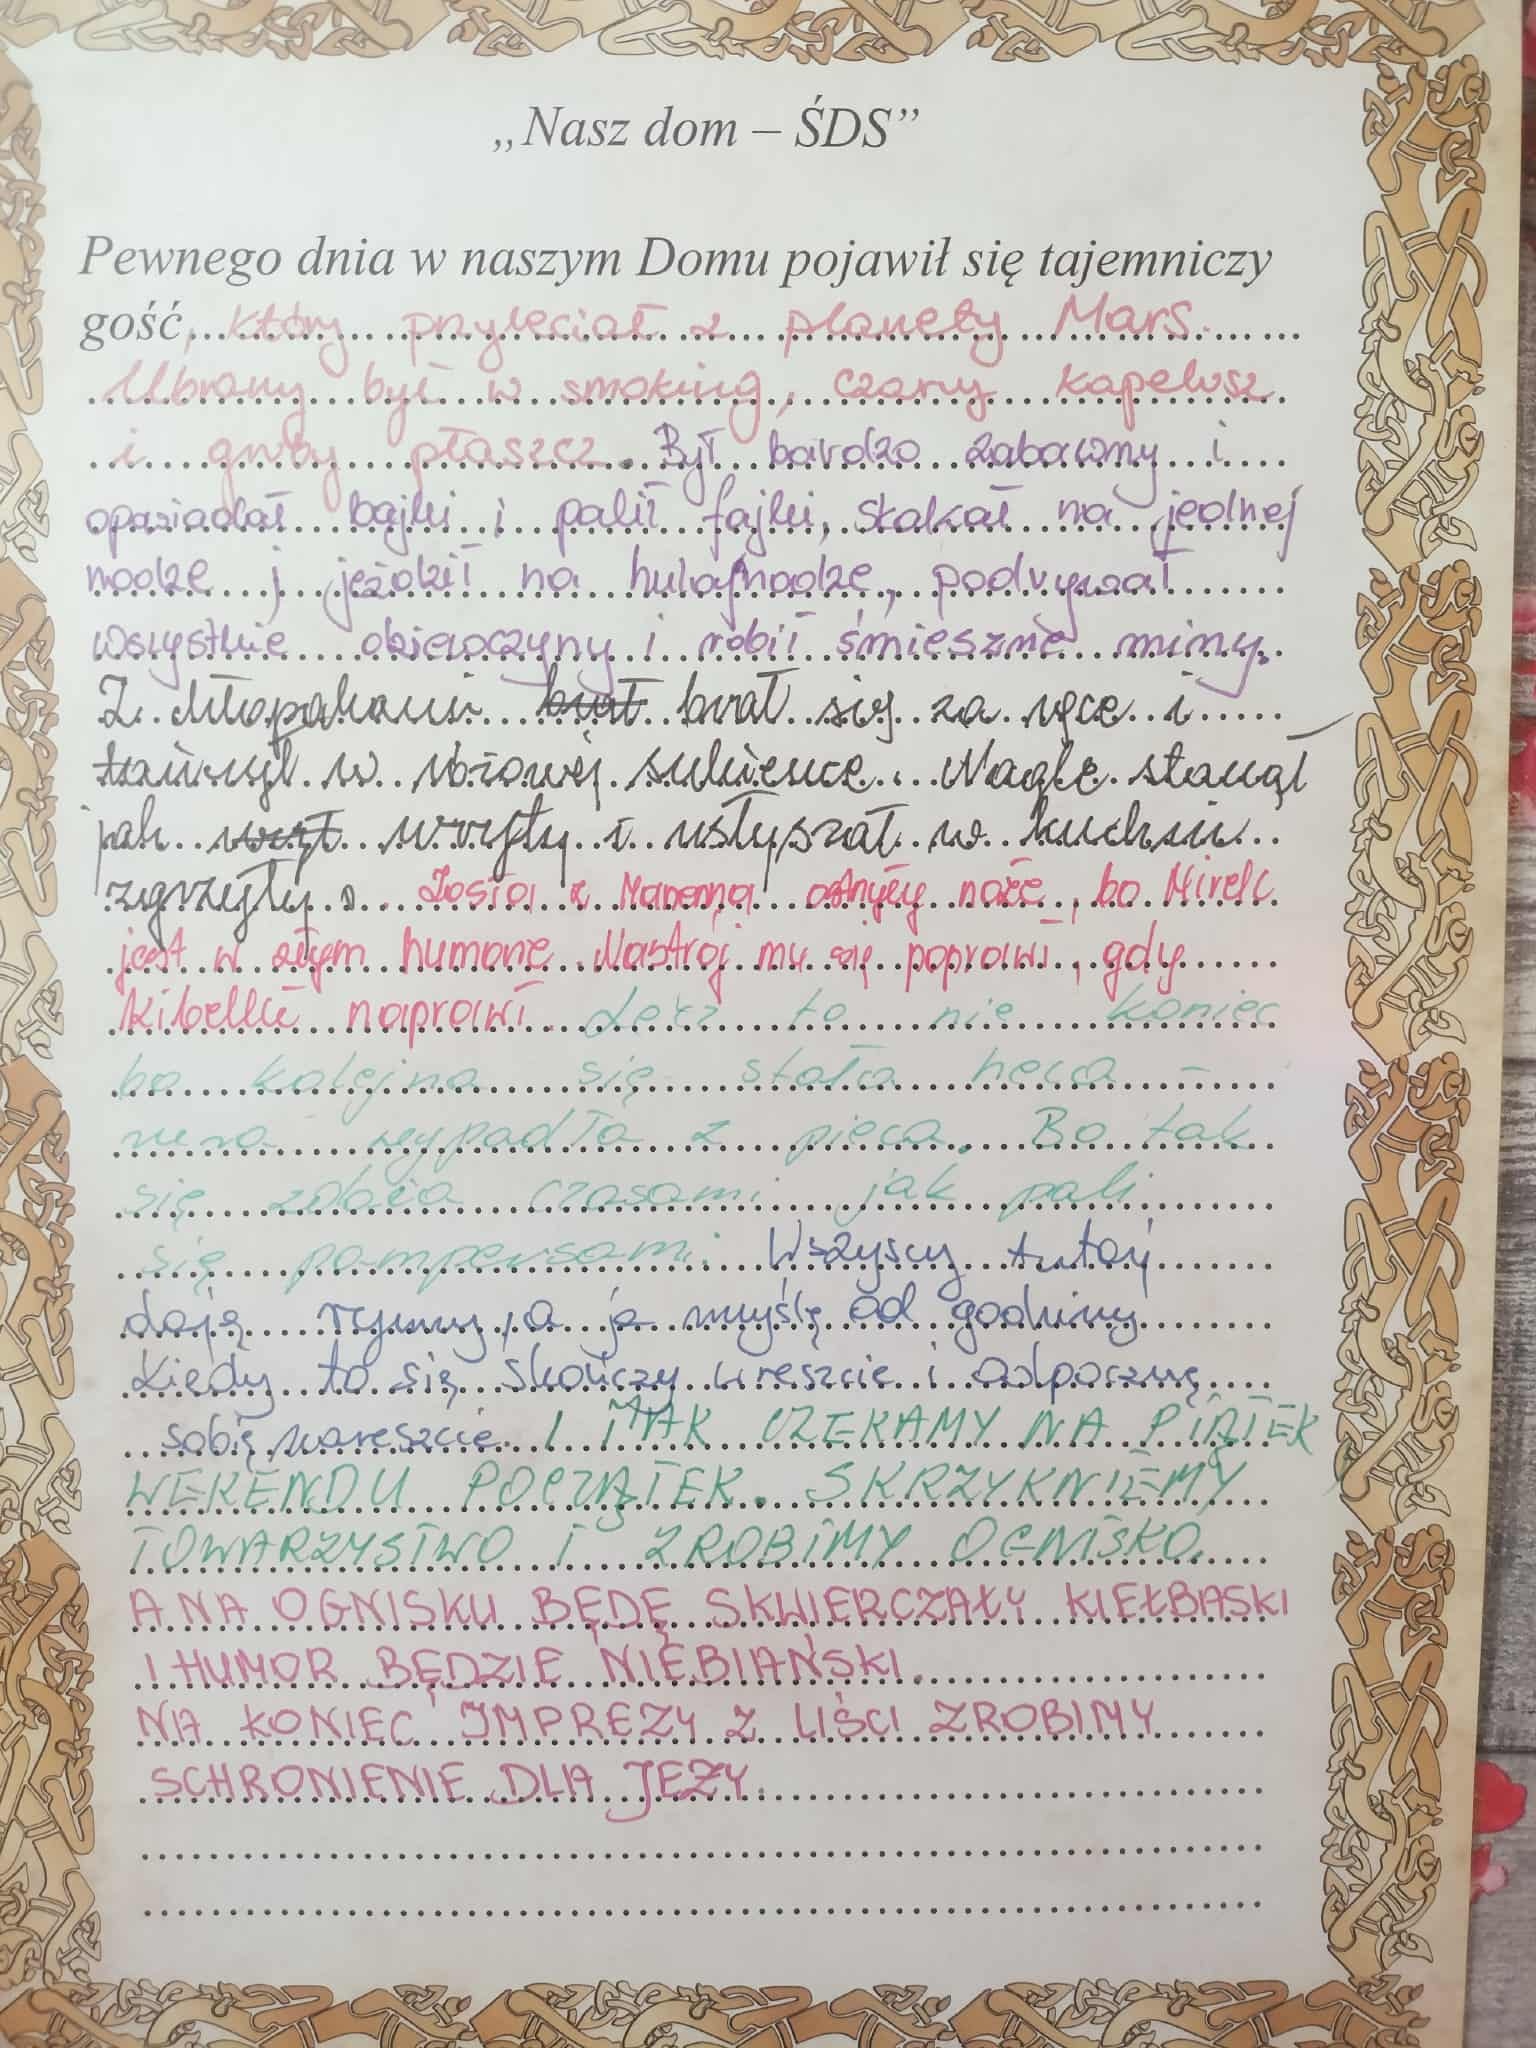 „Nasz dom – ŚDS”
Pewnego dnia w naszym Domu pojawił się tajemniczy
gość, który przyleciał z planety Mars.
Ubrany był w smoking, czarny kapelusz
i gruby płaszcz. Był bardzo zabawny i
opowiadał bajki i palił fajki, skakał na jednej
nodze i jeździł na hulajnodze, podrywał
wszystkie dziewczyny i robił śmieszne miny.
Z chłopakami brał się za ręce i
tańczył w różowej sukience. Nagle stanął
jak wryty i usłyszał w kuchni
zgrzyty. Zosia z Marenną ostrzyły noże, bo Mirek
jest w złym humorze. Nastrój mu się poprawi, gdy
kibelki naprawi. Lecz to nie koniec
bo kolejna się stała heca –
rura wypadła z pieca. Bo tak
się zdarza czasami jak pali
się pampersami. Wszyscy tutaj
dają rymy, a ja myślę od godziny
Kiedy to się skończy wreszcie i odpocznę
sobie nareszcie. I TAK CZEKAMY NA PIĄTEK
WEKENDU POCZĄTEK. SKRZYKNIEMY
TOWARZYSTWO I ZROBIMY OGNISKO.
A NA OGNISKU BĘDĘ SKWIERCZAŁY KIEŁBASKI
I HUMOR BĘDZIE NIEBIAŃSKI.
NA KONIEC IMPREZY Z LIŚCI ZROBIMY
SCHRONIENIE DLA JEŻY.